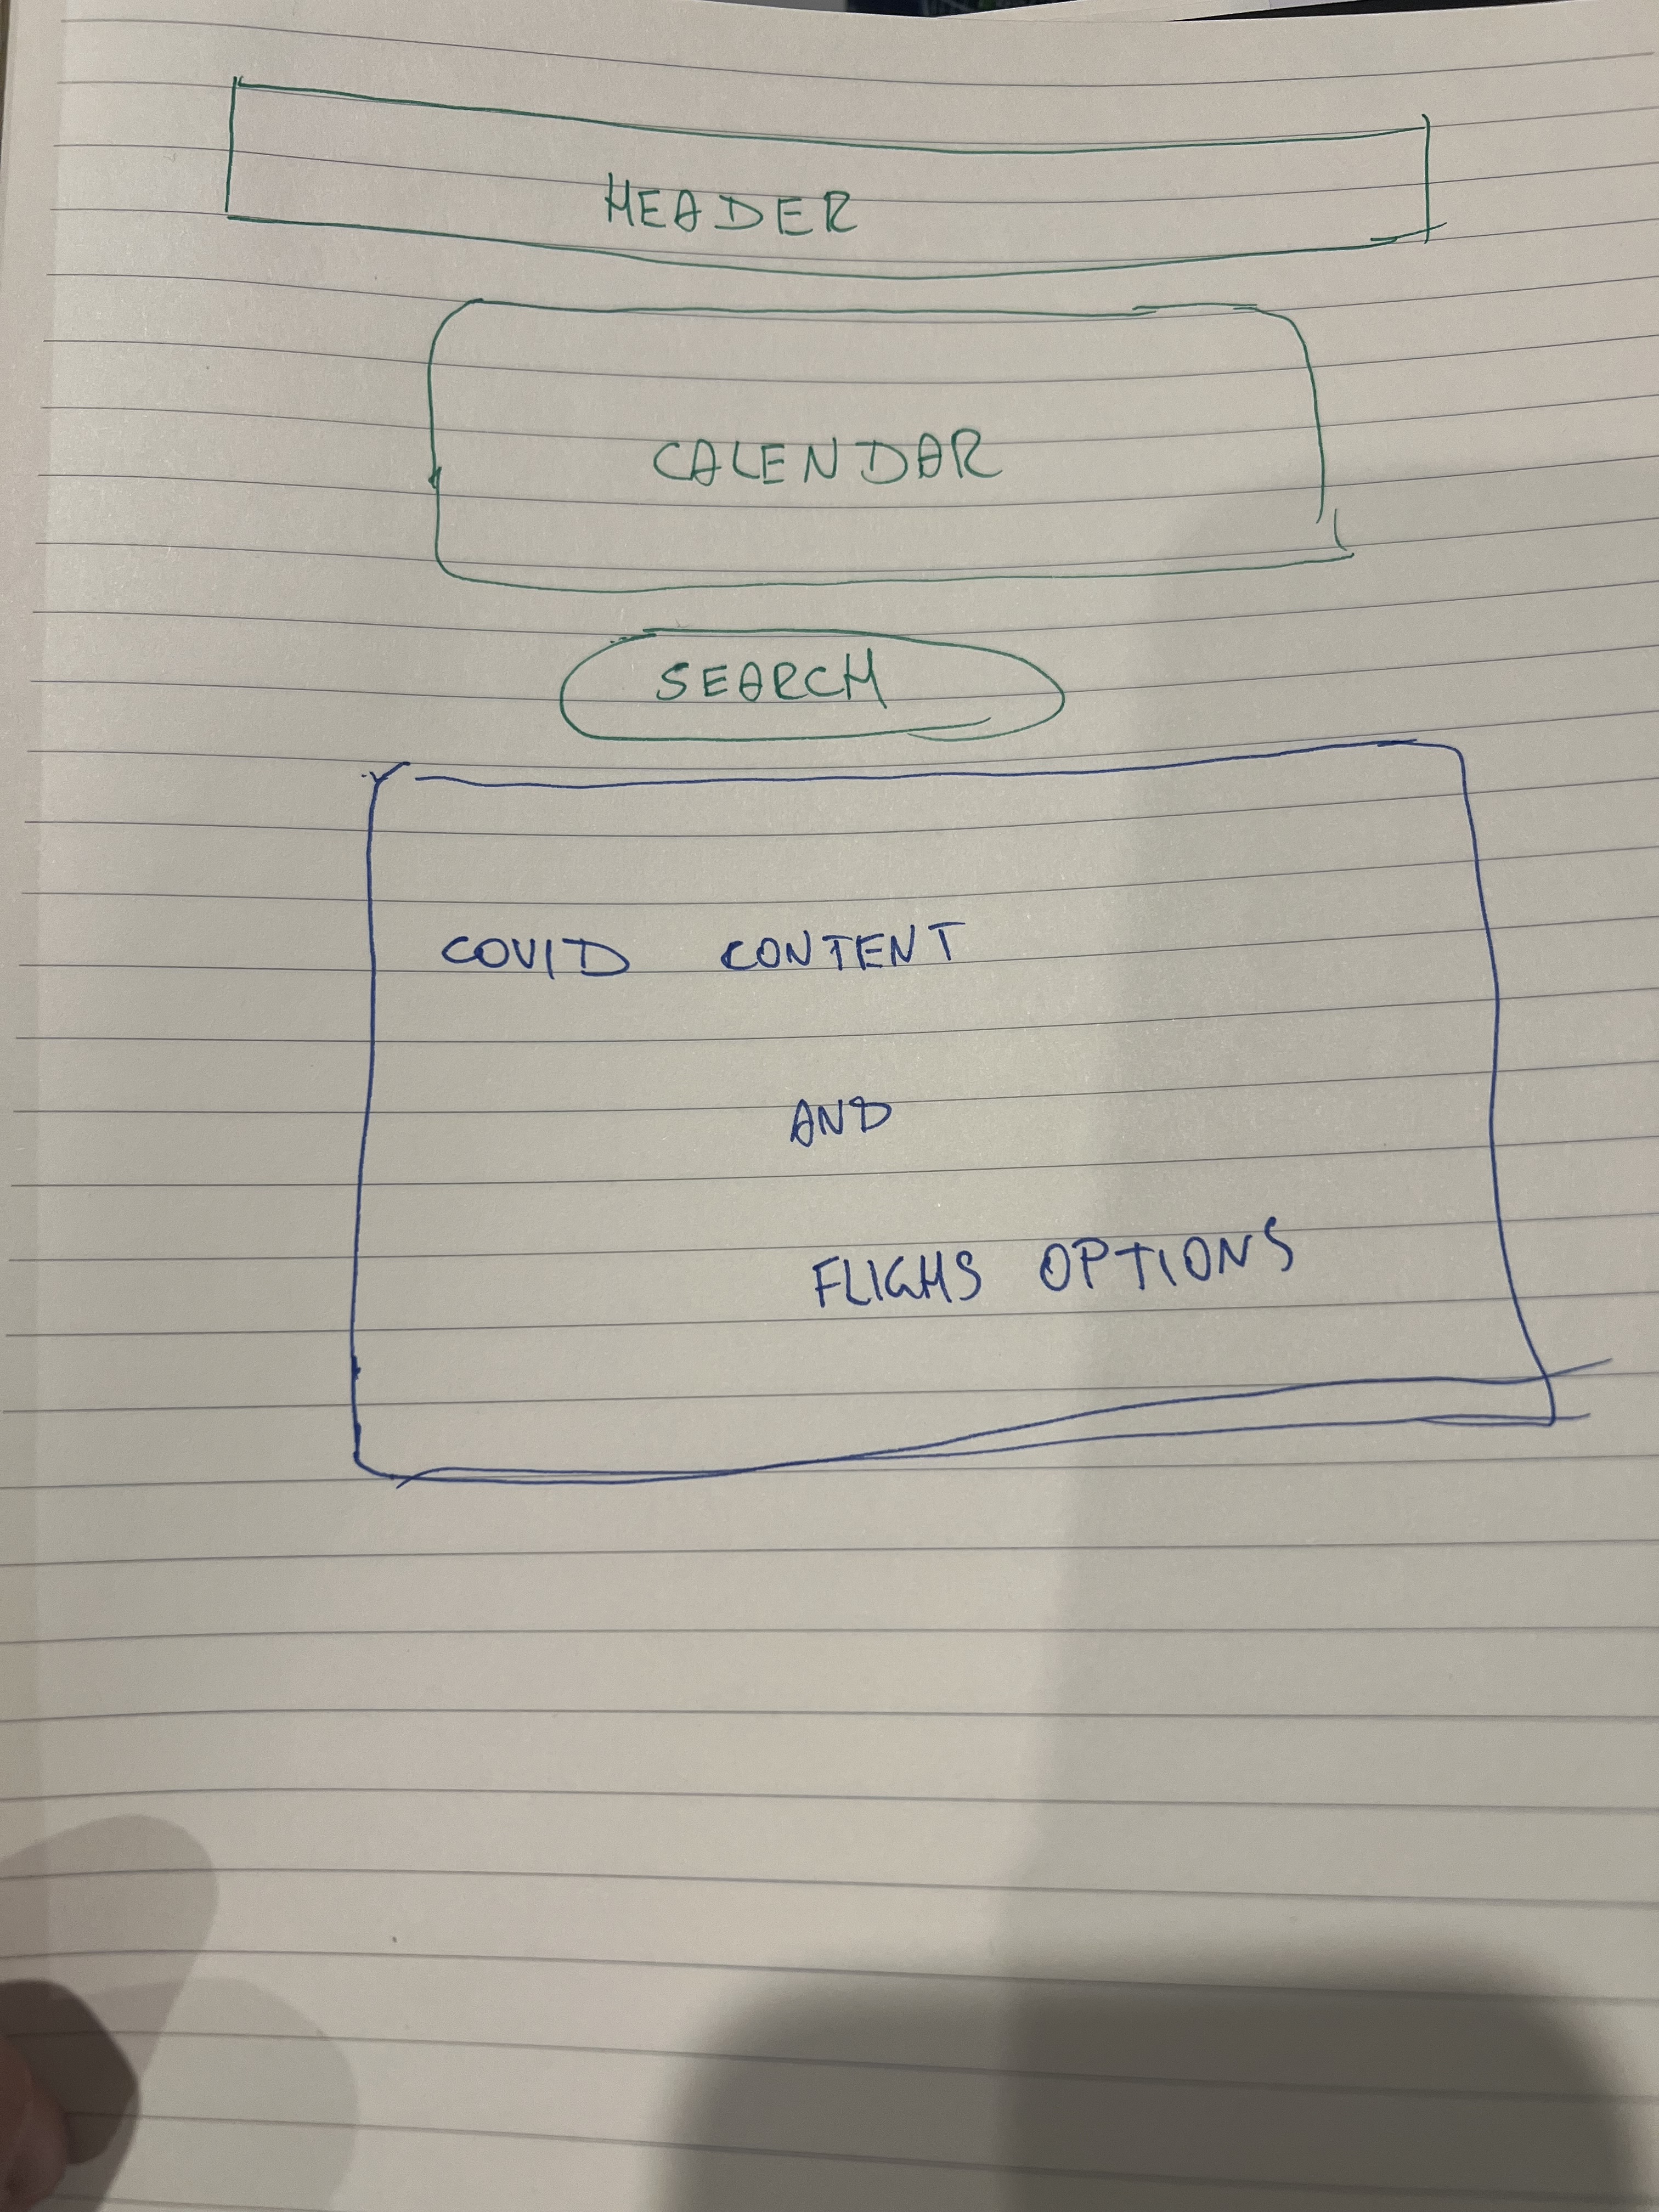 HEADER
CALENDAR
SEARCH
COVID CONTENT
AND
FLIGHS OPTIONS